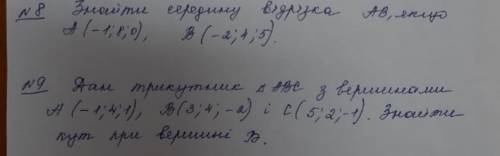 №8 Знайти середину відрізка АВ, якщо
А(-1;8;0), В(-2;4;5).
№9 Дан трикутник △АВС з вершинами
А(-1;4;1), В(3;4;-2) і С(5;2;-1). Знайти
кут при вершині В.